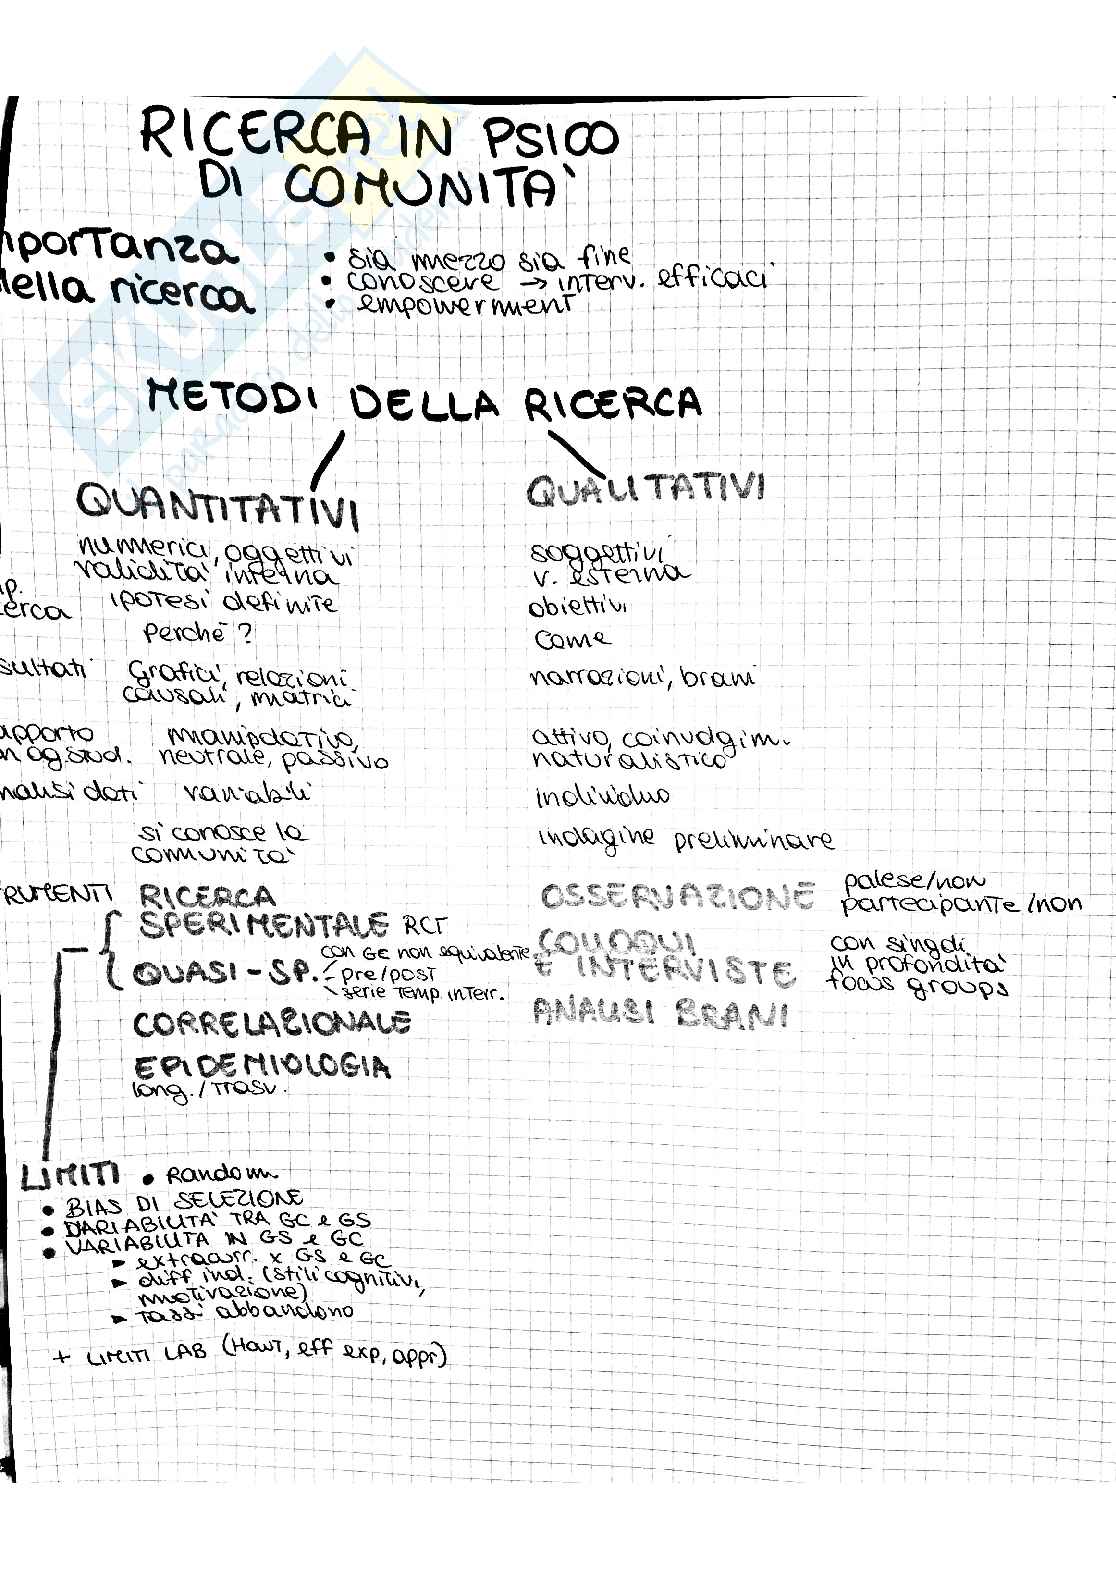 RICERCA IN PSICO
DI COMUNITA'
mportanza
della ricerca
• sia mezzo sia fine
• conoscere → interv. efficaci
• empowerment
METODI DELLA RICERCA
QUANTITATIVI
QUALITATIVI
numerici, oggettivi
validità interna
soggettivi
v. esterna
ip.
cerca
ipotesi definite
obiettivi
perché?
come
sultati
grafici, relazioni
causali, matrici
narrazioni, brani
apporto
n og. stud.
manipolativo,
neutrale, passivo
attivo, coinvolgim.
naturalistico
nalisi dati
variabili
individuo
si conosce la
comunità
indagine preliminare
RUMENTI
RICERCA
SPERIMENTALE RCT
QUASI-SP.
con GC non equivalente
pre/post
serie temp interr.
CORRELAZIONALE
EPIDEMIOLOGIA
long./trasv.
OSSERVAZIONE
palese/non
partecipante/non
COLLOQUI
E INTERVISTE
con singoli
in profondità
focus groups
ANALISI BRANI
LIMITI • Random
• BIAS DI SELEZIONE
• VARIABILITA' TRA GC e GS
• VARIABILITA IN GS e GC
► extracurr. x GS e GC
► diff ind. (stili cognitivi,
motivazione)
► tassi abbandono
+ LIMITI LAB (Hawt, eff exp, appr)